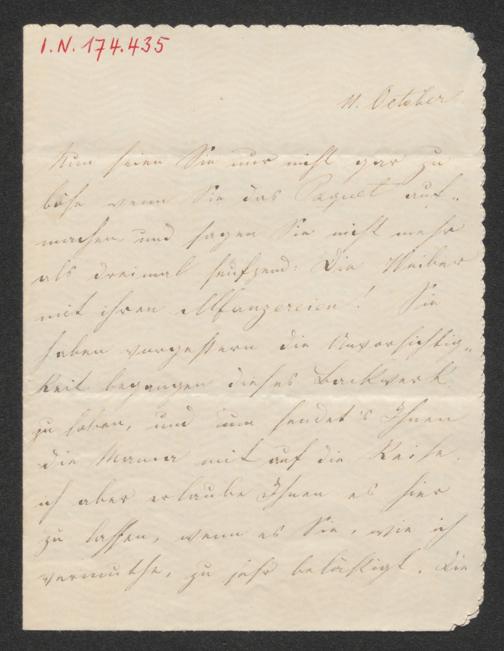 I.N. 174.435
11. October
Nun seien Sie nur nicht gar zu
böse wenn Sie das Paquet auf-
machen und sagen Sie nicht mehr
als dreimal seufzend: Die Weiber
mit ihren Alfanzereien! Sie
haben vorgestern die Unvorsichtig-
keit begangen dieses Backwerk
zu loben, und nun sendet's Ihnen
die Mama mit auf die Reise.
ich aber erlaube Ihnen es hier
zu lassen, wenn es Sie, wie ich
vermuthe, zu sehr belästigt. Die